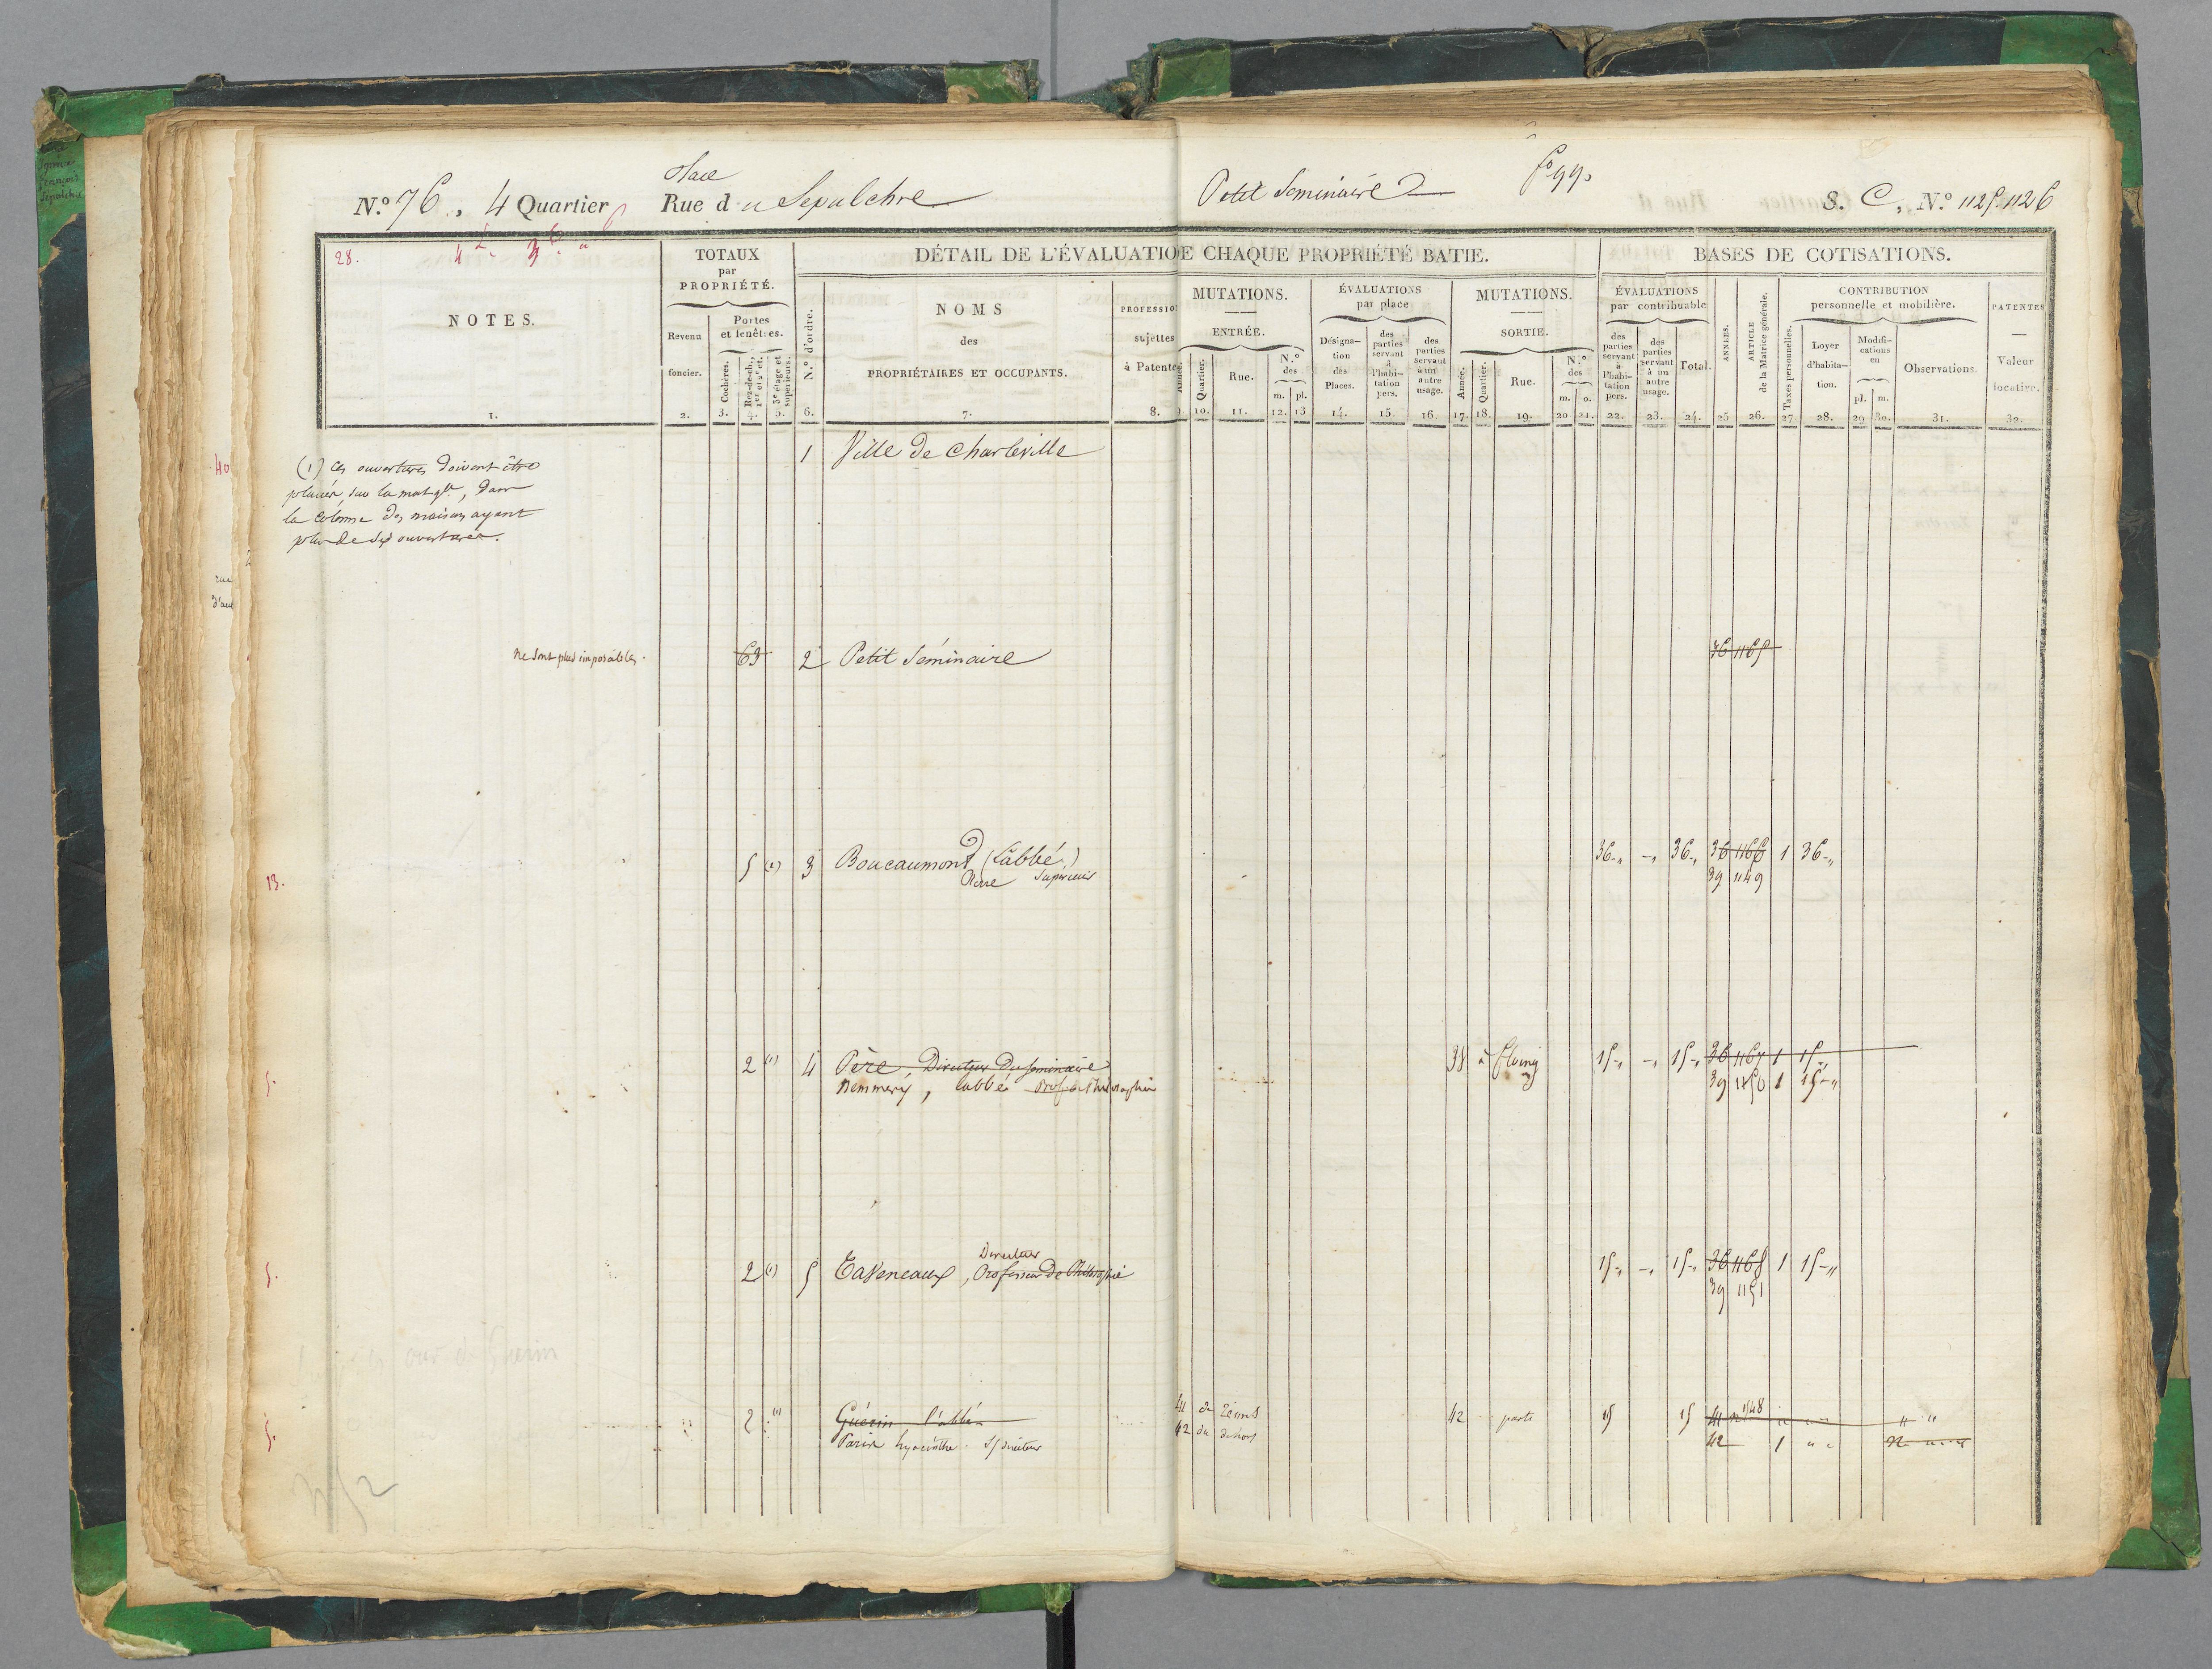 Place
N.º 76. 4 Quartier Rue du Sepulchre
Petit Seminaire fº 99.
S. C, N.º 1125. 1126
28.
NOTES.
1.
TOTAUX
par
PROPRIÉTÉ.
Revenu
foncier.
2.
Portes
et fenêtres.
Cochères.
3.
Rez-de-ch., 1er et 2e ét.
4.
3e étage et supérieurs.
5.
DÉTAIL DE L'ÉVALUATIO
E CHAQUE PROPRIÉTÉ BATIE.
N.º d'ordre.
6.
NOMS
des
PROPRIÉTAIRES ET OCCUPANTS.
7.
PROFESSIO
sujettes
à Patente
8.
MUTATIONS.
ENTRÉE.
Année.
Quartier.
10.
Rue.
11.
N.º
des
m. pl.
12. 13
ÉVALUATIONS
par place
Désigna-
tion
des
Places.
14.
des
parties
servant
à
l'habi-
tation
pers.
15.
des
parties
servant
à un
autre
usage.
16.
MUTATIONS.
SORTIE.
Année.
17.
Quartier.
18.
Rue.
19.
N.º
des
m. o.
20 21.
BASES DE COTISATIONS.
ÉVALUATIONS
par contribuable
des
parties
servant
à
l'habi-
tation
pers.
22.
des
parties
servant
à un
autre
usage.
23.
Total.
24.
ANNÉES.
25
ARTICLE
de la Matrice générale.
26.
Taxes personnelles.
27
CONTRIBUTION
personnelle et mobilière.
Loyer
d'habita-
tion.
28.
Modifi-
cations
en
pl. m.
29 30.
Observations.
31.
PATENTES
Valeur
locative.
32.
(1) Ces ouvertures doivent être
placées, sur la mat. gle, dans
la colonne des maisons ayant
plus de six ouvertures.
1 Ville de Charleville
ne sont plus imposables.
63 2 Petit Séminaire
36 1165
13.
5 (1) 3 Boucaumont (l'abbé)
Pierre Supérieur
36-„ -„ 36-„ 36 1166 1 36-„
39 1149
5.
2 (1) 4 Père, Directeur du Seminaire
Nemmery, l'abbé
38 à Floing 15-„ -„ 15-„ 36 1167 1 15-„
39 1150 1 15-„
5.
Directeur
2 (1) 5 Taveneaux, Professeur de Philosophie
15-„ -„ 15-„ 36 1168 1 15-„
39 1151
5.
2 (1) Guérin l'abbé
Paris hyacinthe. S/directeur
41 de Reims
42 du dehors
42 parti 15 15 41 1148
42 1